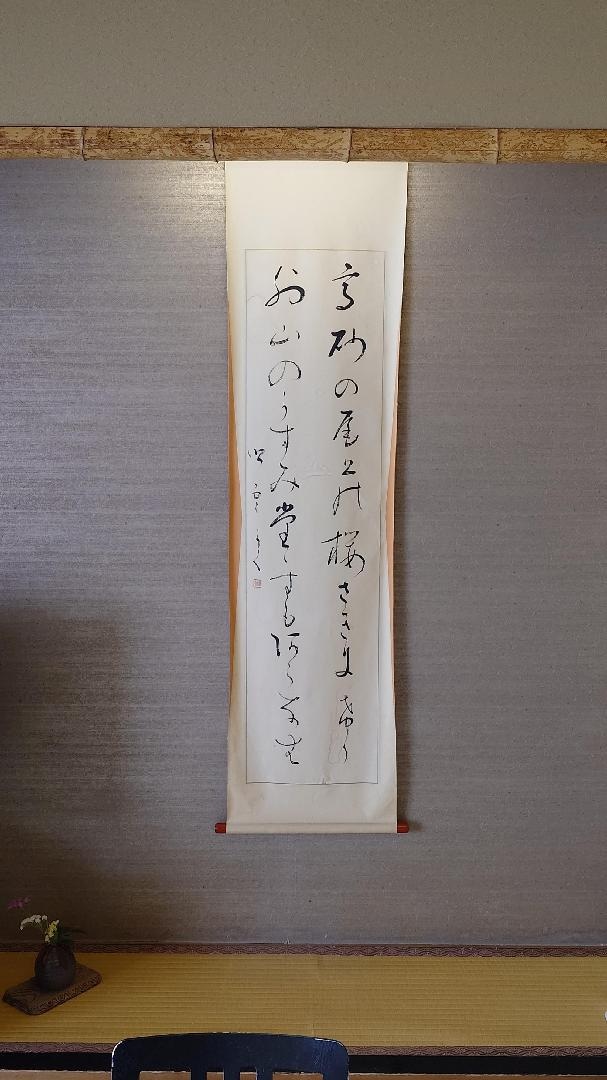 高砂の尾上の桜さきに希り
外山のかすみ堂ゝすも阿らなむ